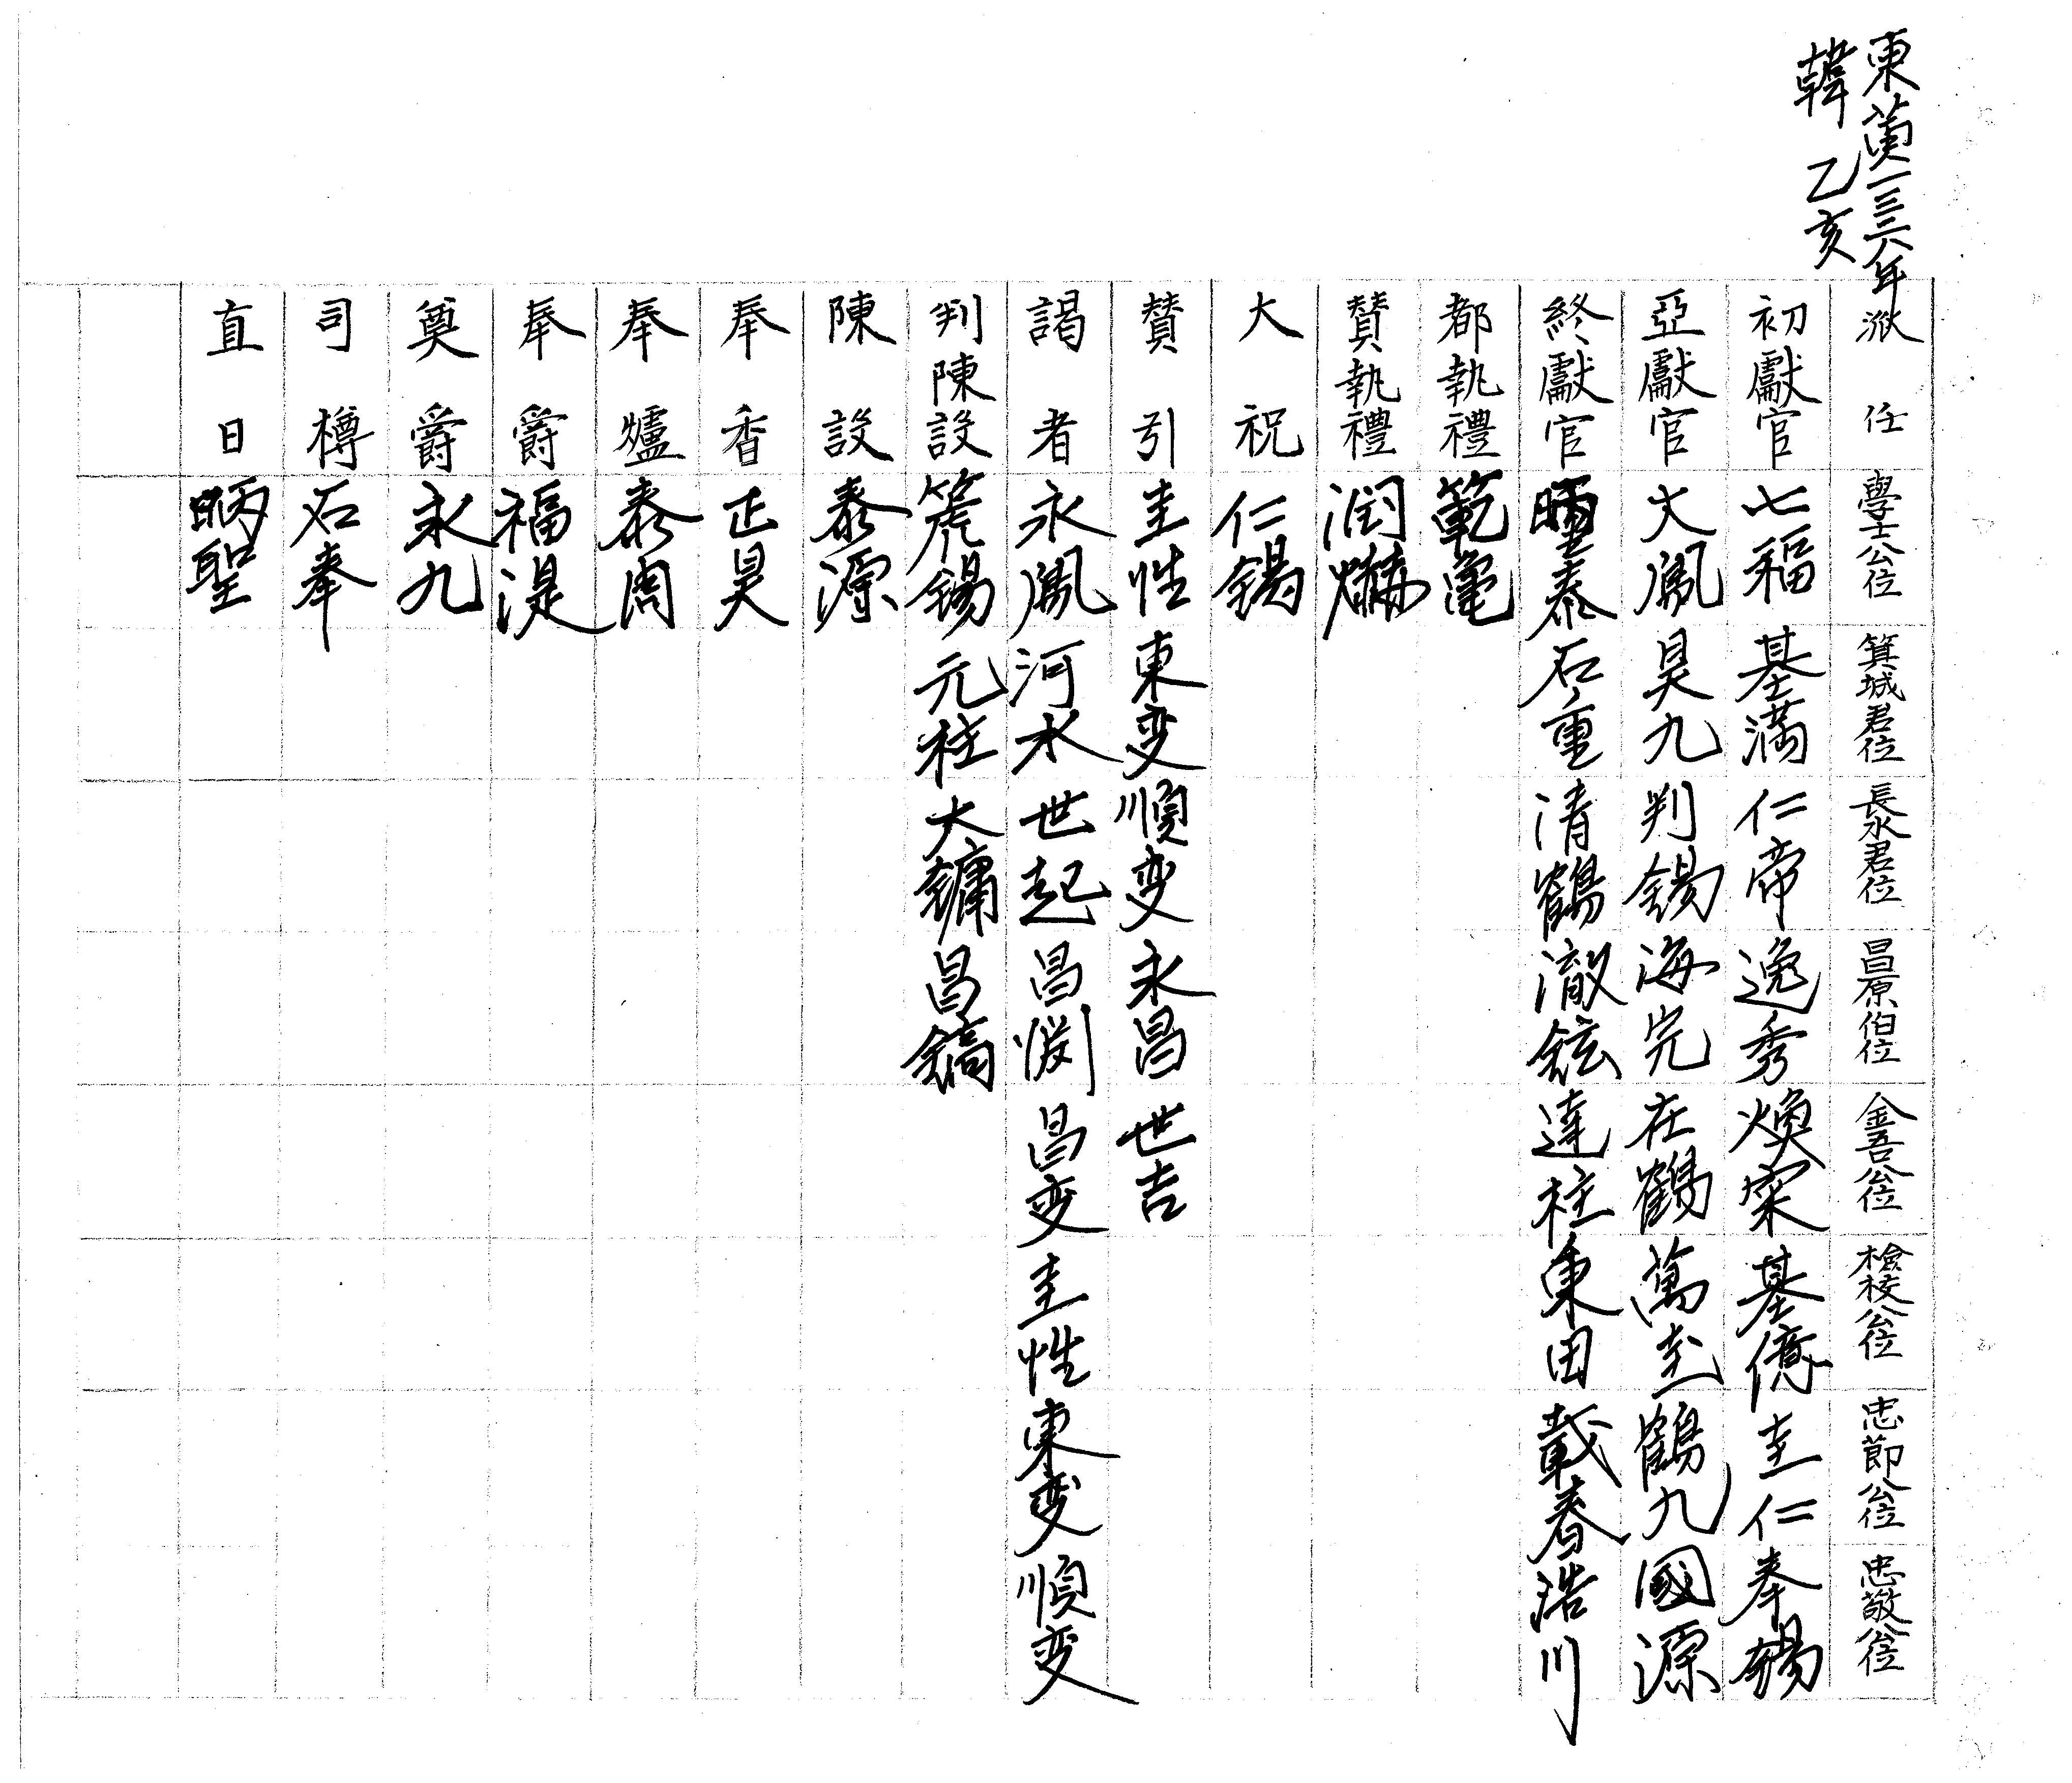 東
韓 乙亥
派任 學士公位 箕城君位 長水君位 昌原伯位 金吾公位 檢校公位 忠節公位 忠敬公位
初獻官 七福 基満 仁帝 逸秀 煥寀 基億 圭仁 奉錫
亞獻官 大鳳 昊九 判錫 海完 在鶴 萬圭 鶴九 國源
終獻官 泰 石重 清鶴 澈鉉 達柱 東田 載春 浩川
都執禮 範龜
賛執禮 潤爀
大祝 仁錫
賛引 圭性 東変 順変 永昌 世吉
謁者 永鳳 河水 世起 昌渕 昌変 圭性 東変 順変
判陳設 箎錫 元柱 大鏞 昌鎬
陳設 泰源
奉香 正昊
奉爐 泰周
奉爵 福湜
奠爵 永九
司樽 石奉
直日 昞聖